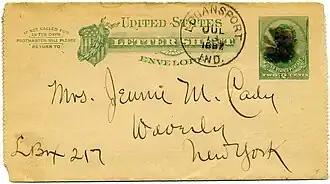 IF NOT CALLED FOR
IN TEN DAYS
POSTMASTER WILL PLEASE
RETURN TO
UNITED STATES
LETTER SHEET
ENVELOPE
LOGANSPORT
JUL
IND.
TWO CENTS
Mrs. Jennie M. Cady
Waverly
L Box 217
New York